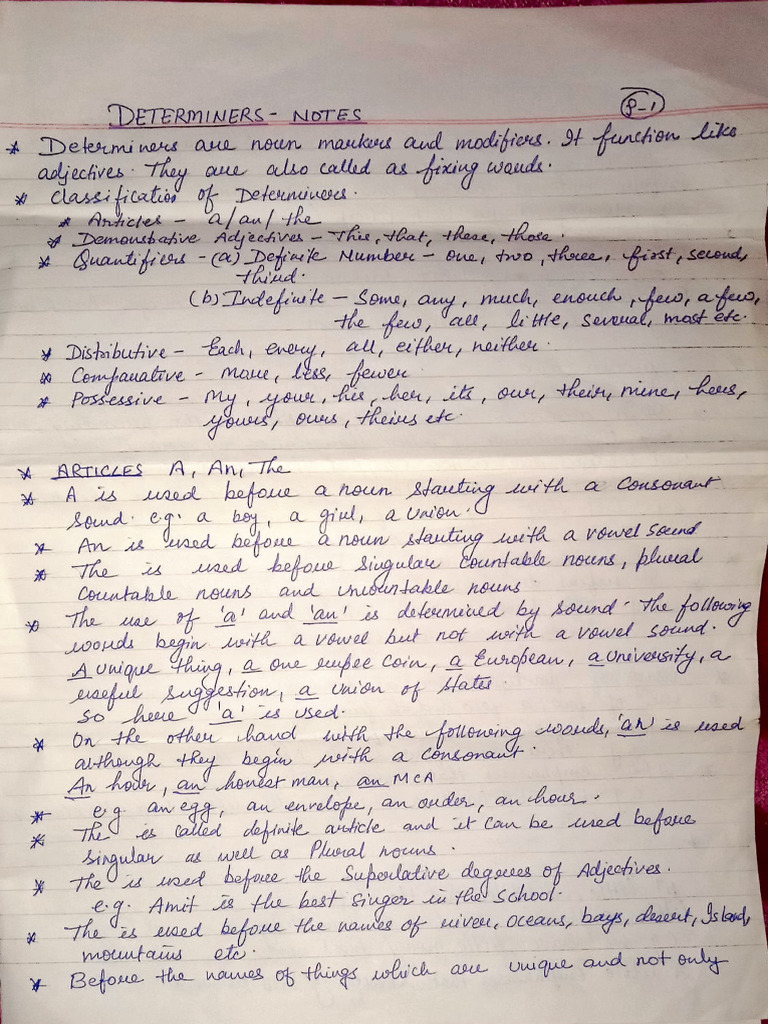 P-1
DETERMINERS - NOTES
* Determiners are noun markers and modifiers. It function like
adjectives. They are also called as fixing words.
* Classification of Determiners.
* Articles - a/an/the
* Demonstrative Adjectives - This, that, these, those.
* Quantifiers - (a) Definite Number - one, two, three, first, second,
third.
(b) Indefinite - Some, any, much, enough, few, a few,
the few, all, little, several, most etc.
* Distributive - Each, every, all, either, neither.
* Comparative - more, less, fewer
* Possessive - My, your, his, her, its, our, their, mine, hers,
yours, ours, theirs etc.
* ARTICLES A, An, The
* A is used before a noun starting with a consonant
sound. e.g. a boy, a girl, a union.
* An is used before a noun starting with a vowel sound
* The is used before singular countable nouns, plural
countable nouns and uncountable nouns.
* The use of 'a' and 'an' is determined by sound. The following
words begin with a vowel but not with a vowel sound.
A unique thing, a one rupee coin, a European, a University, a
useful suggestion, a union of states.
so here 'a' is used.
* On the other hand with the following words, 'an' is used
although they begin with a consonant.
An hour, an honest man, an MCA
* e.g. an egg, an envelope, an order, an hour.
* The is called definite article and it can be used before
singular as well as Plural nouns.
* The is used before the Superlative degrees of Adjectives.
e.g. Amit is the best singer in the School.
* The is used before the names of river, oceans, bays, desert, Island,
mountains etc.
* Before the names of things which are unique and not only